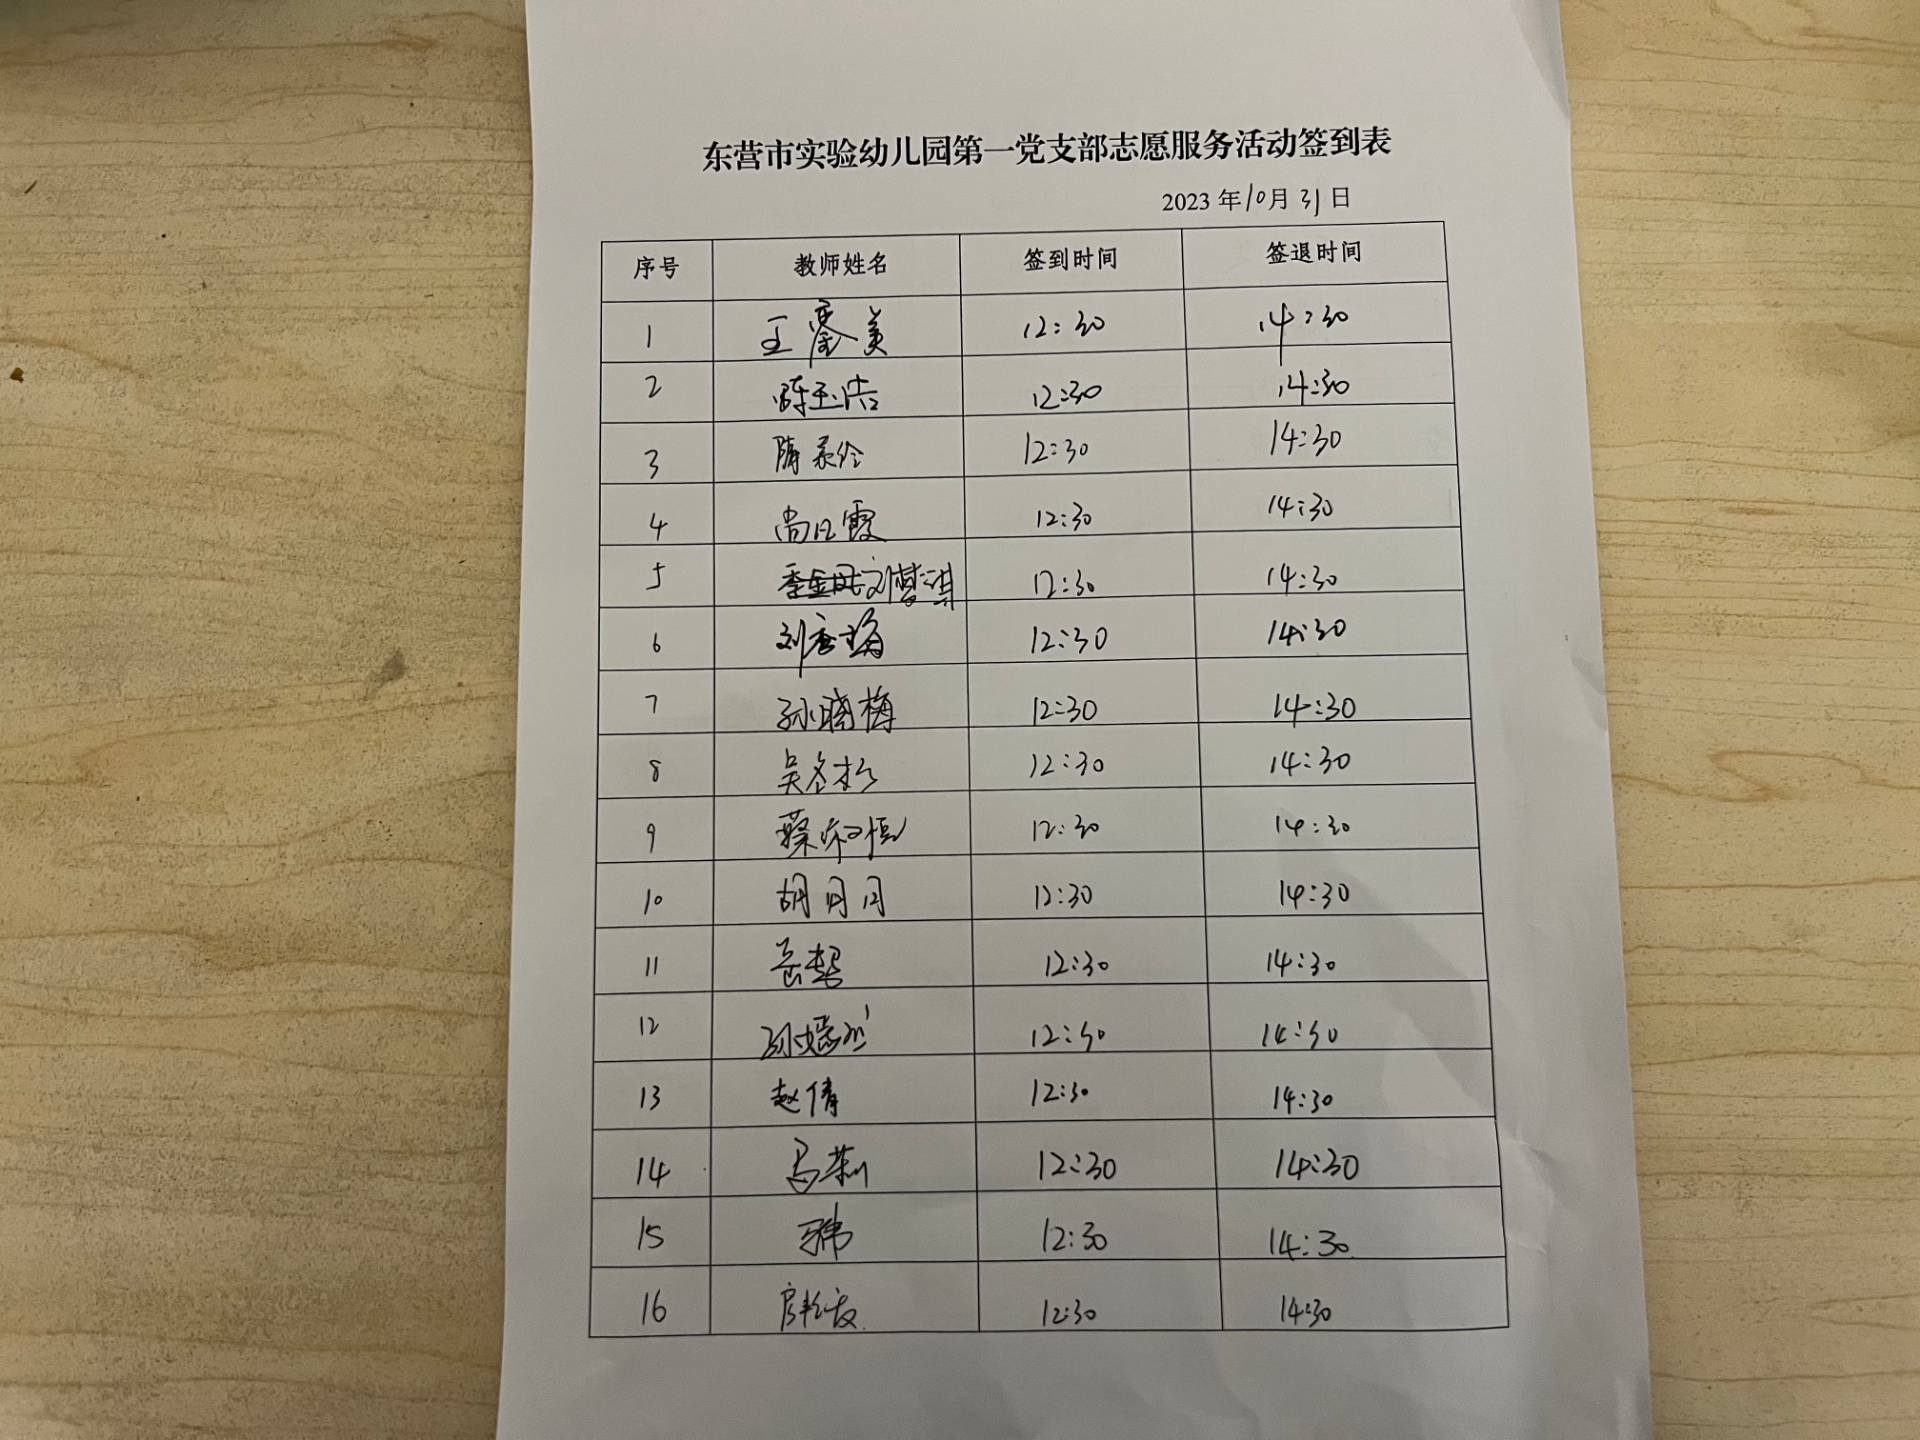 东营市实验幼儿园第一党支部志愿服务活动签到表
2023 年10月31日
序号 教师姓名 签到时间 签退时间
1 王鋆美 12:30 14:30
2 陈玉洁 12:30 14:30
3 隋 12:30 14:30
4 尚 霞 12:30 14:30
5 刘梦琪 12:30 14:30
6 刘 12:30 14:30
7 孙晓梅 12:30 14:30
8 吴冬杉 12:30 14:30
9 蔡 12:30 14:30
10 胡月月 12:30 14:30
11 岳 12:30 14:30
12 孙嫣 12:30 14:30
13 赵倩 12:30 14:30
14 马莉 12:30 14:30
15 12:30 14:30
16 12:30 14:30